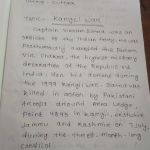 Topic:- Kargil war
Captain Vikram Batra was an
officer of the Indian Army. He was
Posthumously awarded the Param
Vir Chakra, the highest military
decoration of the Republic of
India. for his actions during
the 1999 Kargil war. Batra was
killed in action by Pakistan
troops around Area Ledge,
Point 4875 in Kargil,
Jammu and Kashmir on 7 July
during the three-month-long
conflict.